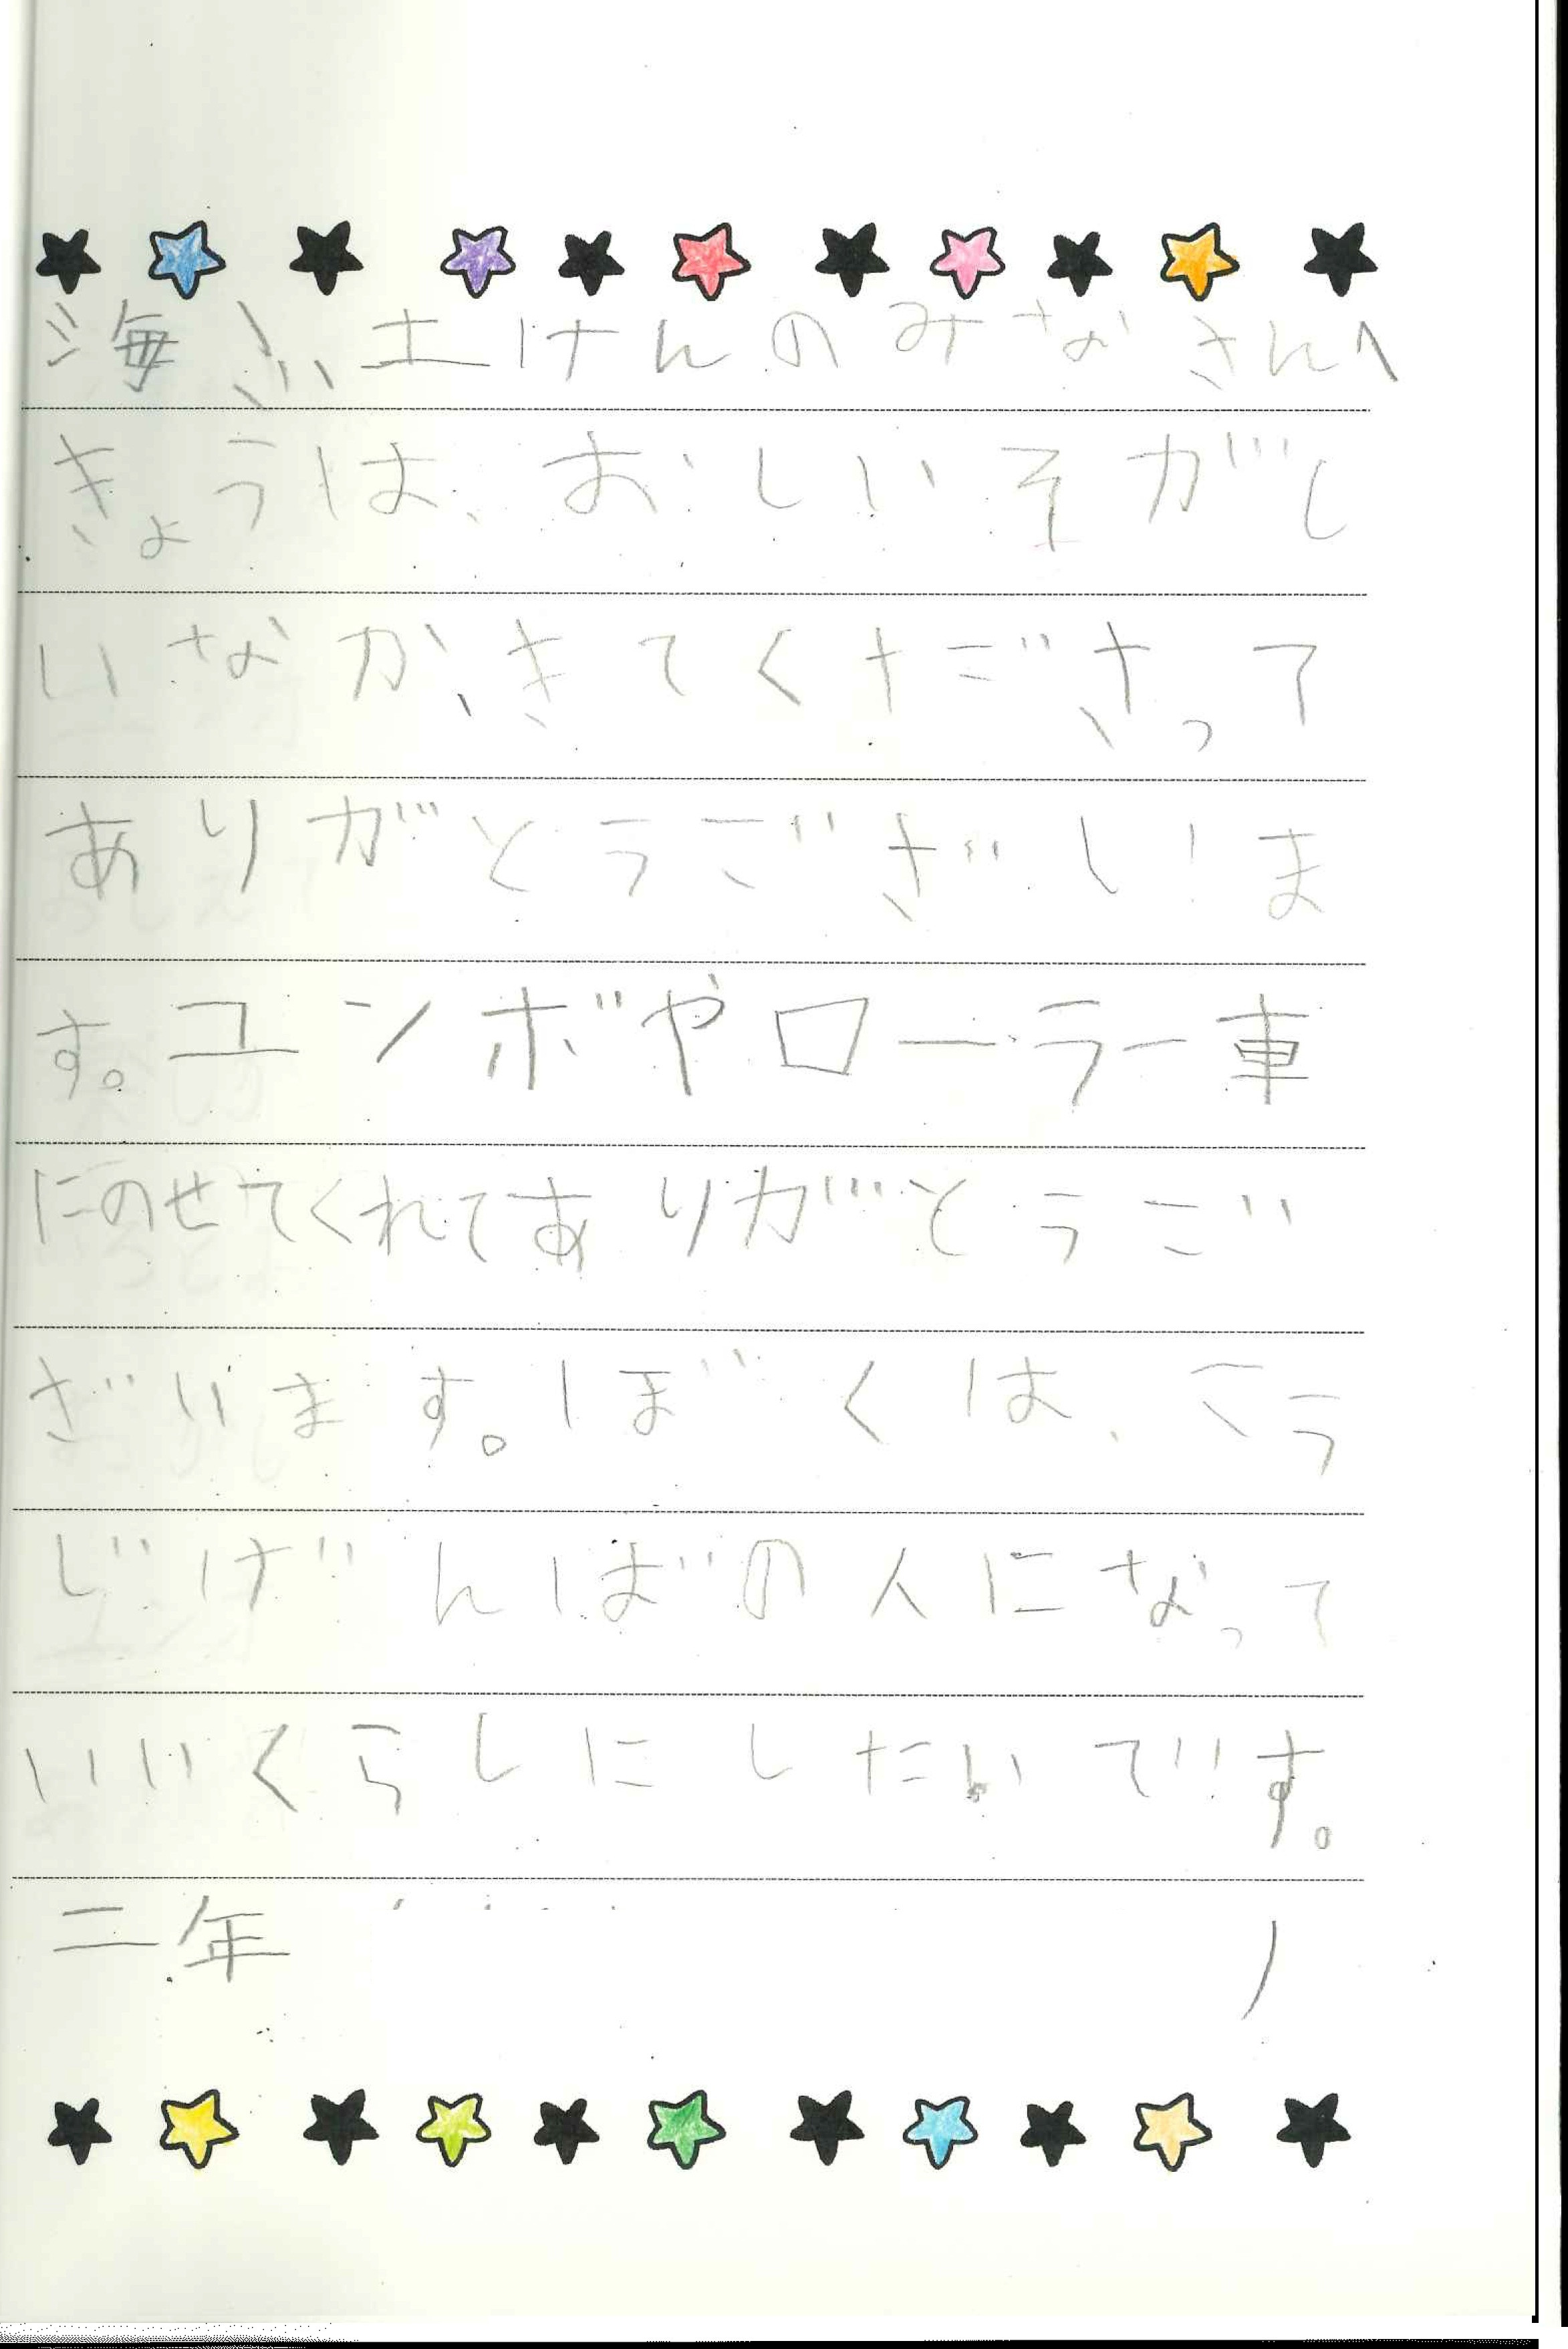 海ふ土けんのみなさんへ
きょうは、おしいそがし
いなか、きてくださって
ありがとうございま
す。ユンボやローラー車
にのせてくれてありがとうご
ざいます。ぼくは、こう
じげんばの人になって
いいくらしにしたいです。
二年